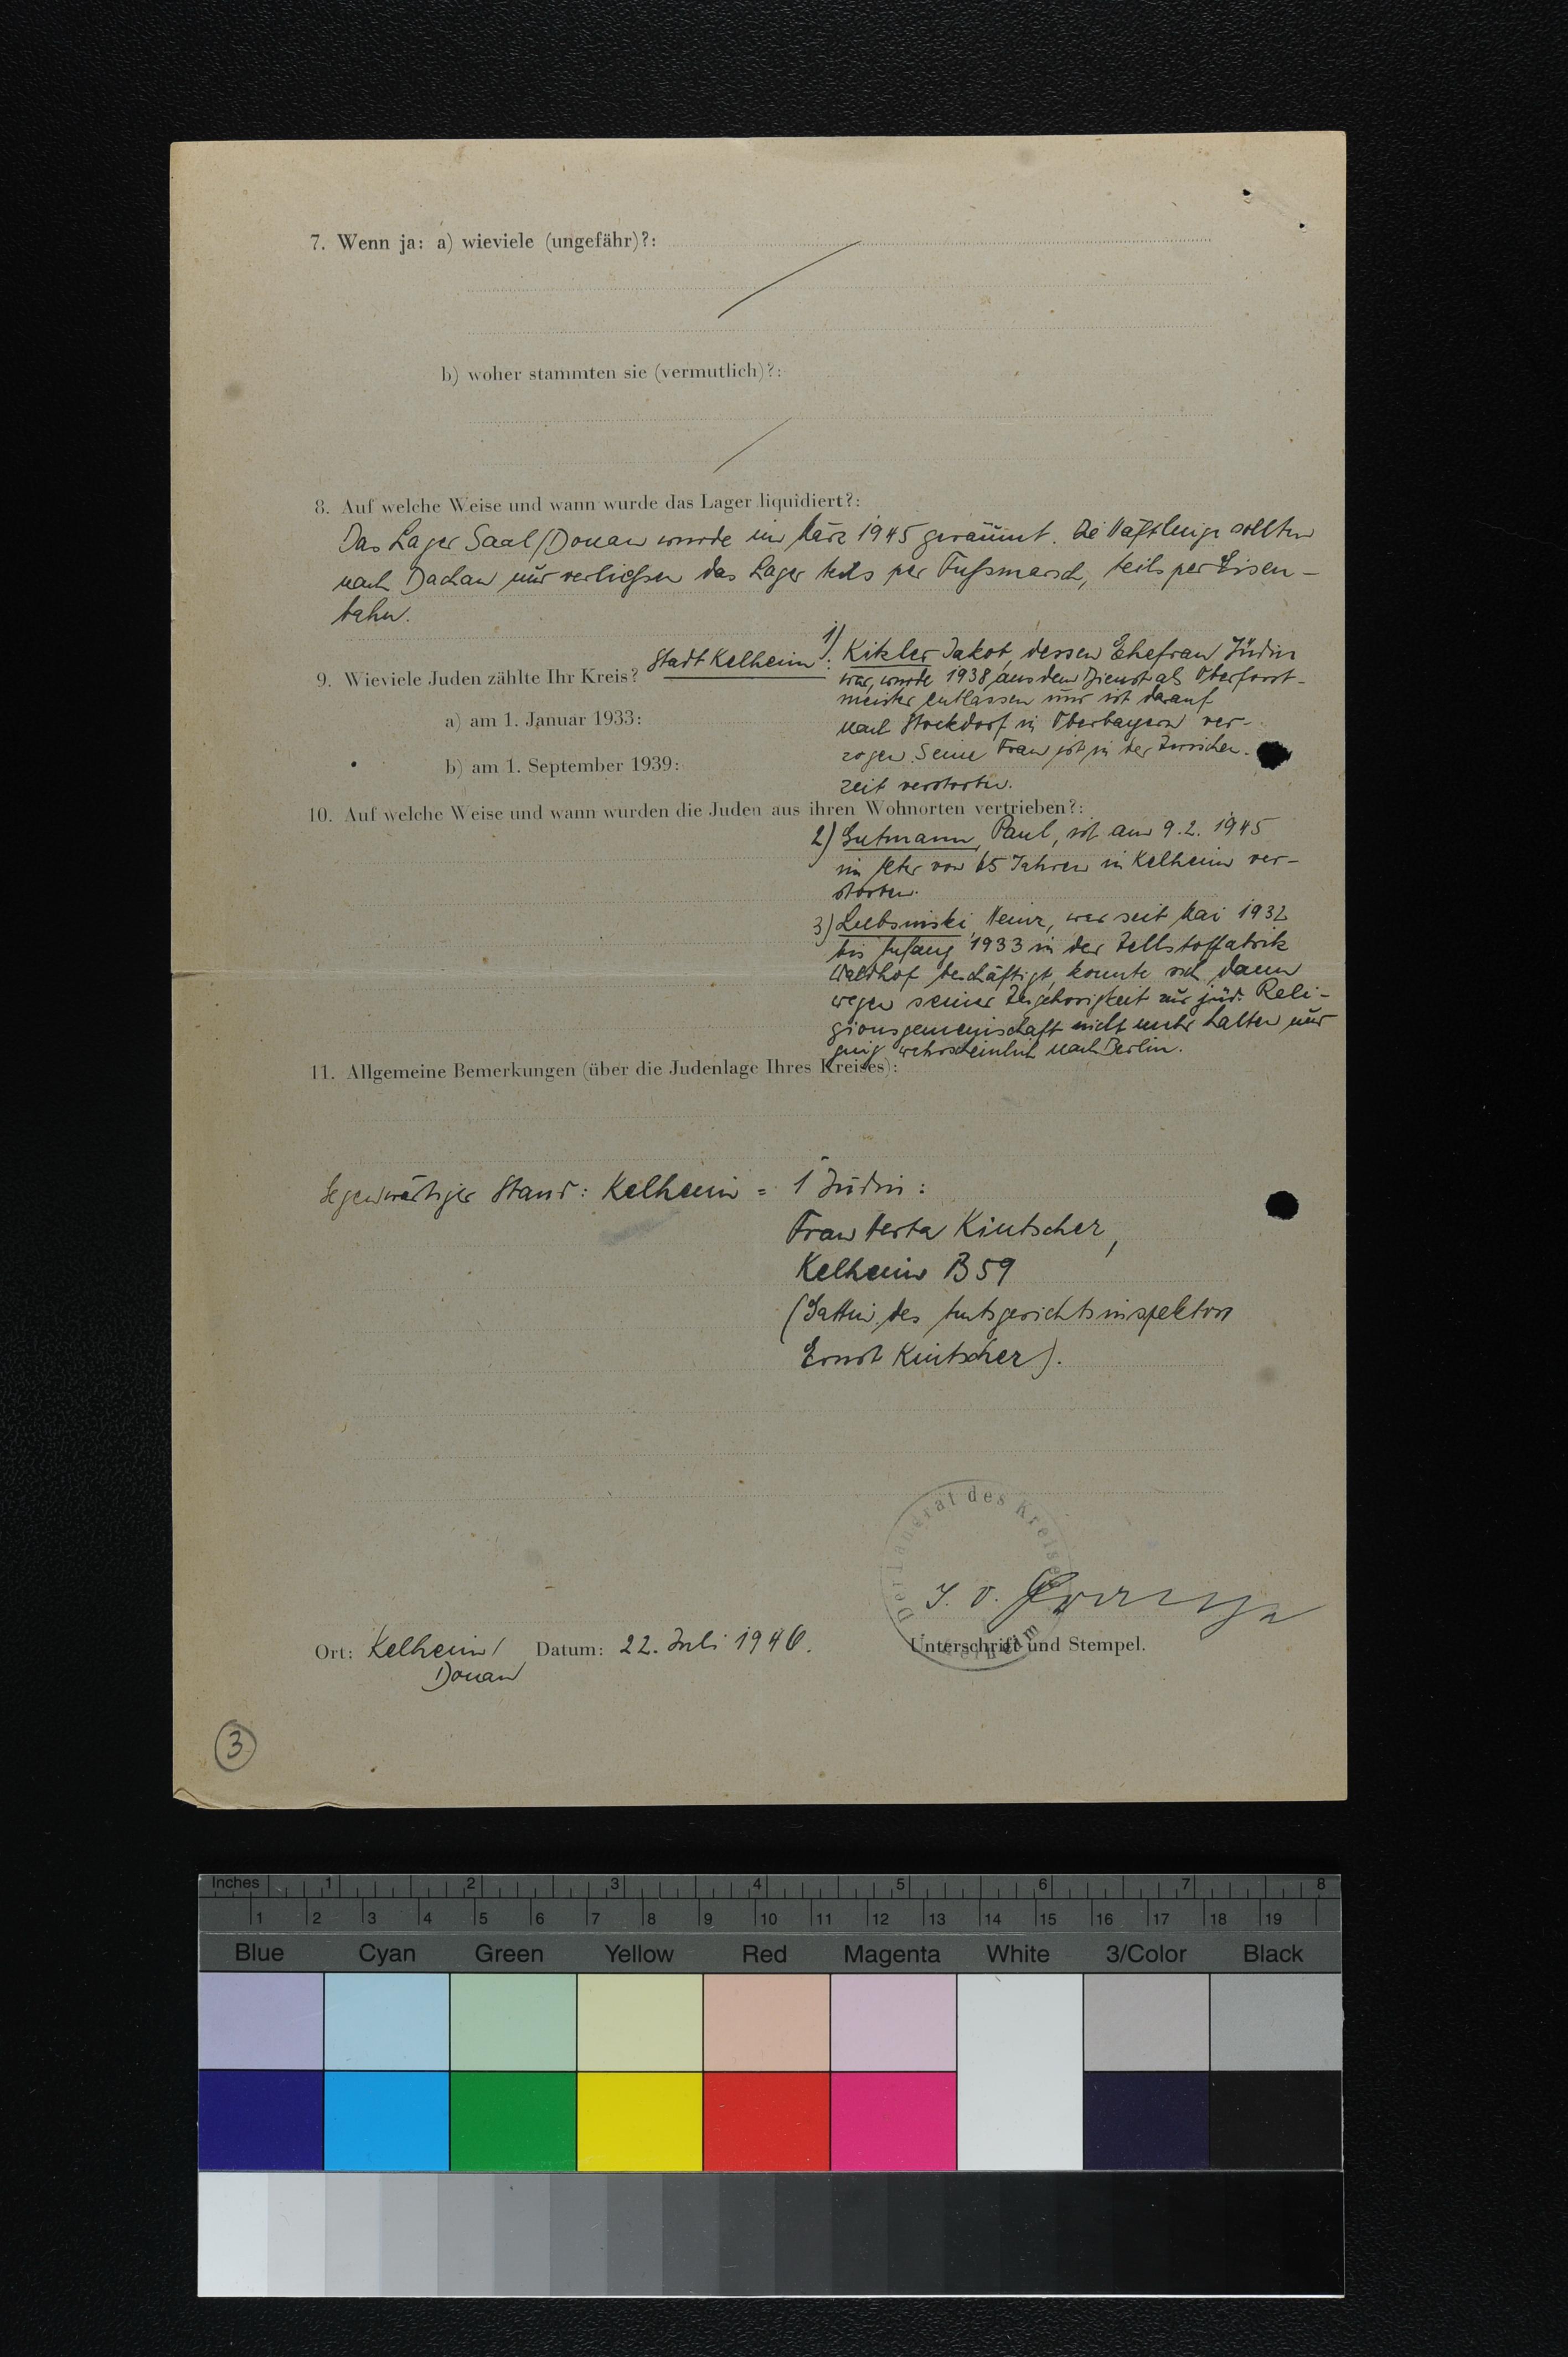 7. Wenn ja: a) wieviele (ungefähr)?:
b) woher stammten sie (vermutlich)?:
8. Auf welche Weise und wann wurde das Lager liquidiert?:
Das Lager Saal/Donau wurde im März 1945 geräumt. Die Häftlinge sollten
nach Dachau und verließen das Lager teils per Fußmarsch, teils per Eisen-
bahn.
9. Wieviele Juden zählte Ihr Kreis? Stadt Kelheim:
a) am 1. Januar 1933:
b) am 1. September 1939:
1) Kitzler Jakob, dessen Ehefrau Jüdin
war, wurde 1938 aus dem Dienst als Oberforst-
meister entlassen und ist darauf
nach Stockdorf in Oberbayern ver-
zogen. Seine Frau ist in der Zwischen-
zeit verstorben.
10. Auf welche Weise und wann wurden die Juden aus ihren Wohnorten vertrieben?:
2) Gutmann, Paul, ist am 9.2.1945
im Alter von 65 Jahren in Kelheim ver-
storben.
3) Lubsinski, Heinz, war seit Mai 1932
bis Anfang 1933 in der Zellstoffabrik
Waldhof beschäftigt, konnte sich dann
wegen seiner Zugehörigkeit zur jüd. Reli-
gionsgemeinschaft nicht mehr halten und
ging wahrscheinlich nach Berlin.
11. Allgemeine Bemerkungen (über die Judenlage Ihres Kreises):
Gegenwärtiger Stand: Kelheim = 1 Jüdin:
Frau Berta Kintscher,
Kelheim B 59
(Gattin des Amtsgerichtsinspektors
Ernst Kintscher).
Der Landrat des Kreises Kelheim
I. V.
Ort: Kelheim/ Datum: 22. Juli 1946.
Donau
Unterschrift und Stempel.
3
Inches 1 2 3 4 5 6 7 8
1 2 3 4 5 6 7 8 9 10 11 12 13 14 15 16 17 18 19
Blue Cyan Green Yellow Red Magenta White 3/Color Black